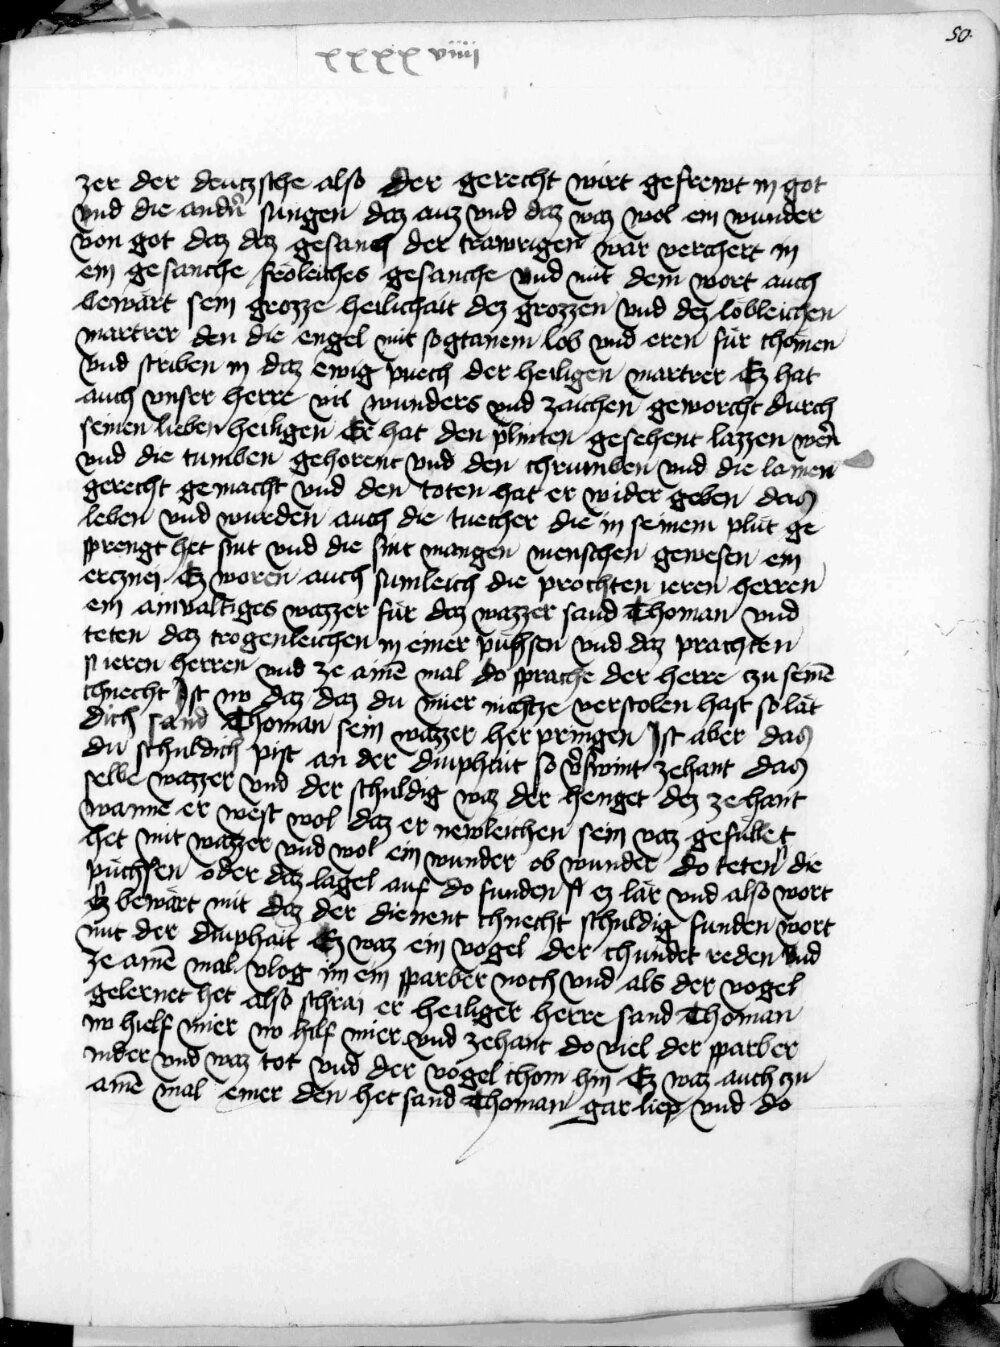 50.
xxxx viiij
zer der deutzsche also Der gerecht wirt gefrewt in got
vnd die andn̄ sungen daz auz vnd daz waz wol ein wunder
von got daz daz gesanch der trawrigen war verchert in
ein gesanche fröleiches gesanche vnd mit dem wort auch
bewärt sein grozze heilichait dez grozzen vnd dez löbleichen
martrer den die engel mit sogtanem lob vnd eren für chömen
vnd scriben in daz ewig puech der heiligen martrer Ez hat
auch vnser herre vil wunders vnd zaichen geworcht durch
seinen lieben heiligen Er hat den plinten gesehent lazzen wern̄
vnd die tumben gehorent vnd den chrumben vnd die lamen
gerecht gemacht vnd den toten hat er wider geben das
leben vnd wurden auch die tuecher die in seinem plüt ge
sprengt het sint vnd die sint mangen menschen gewesen ein
ercznei Ez woren auch sumleich die prochten ieren herren
ein ainvaltiges wazzer für daz wazzer sand Thoman vnd
teten daz trogenleichen in einer pühsen vnd daz prachten
si ieren herren vnd ze aime mal do sprache der herre czu seinē
chnecht Jst no daz daz du mier nichtze verstolen hast so lät
dich sand Thoman sein wazzer her pringen Jst aber das
du schuldich pist an der diuphait so v̄swint zehant das
selbe wazzer vnd der schuldig waz der henget dez zehant
wanne er west wol daz er newleichen sein vaz gefullet
het mit wazzer vnd wol ein wunder ob wunder do teten die
püchsen oder daz lagel auf do funden si ez lär vnd also wort
Ez bewärt mit daz der dienent chnecht schuldig funden wort
mit der diuphait Ez waz ein vogel der chundet reden vnd
ze aimē mal vlog im ein sparber noch vnd als der vogel
gelernet het also schrai er heiliger herre sand Thoman
no hielf mier no hilf mier vnd zehant do viel der sparber
nider vnd waz tot vnd der vogel chom hin Ez waz auch zu
aimē mal einer den het sand Thoman gar liep vnd do